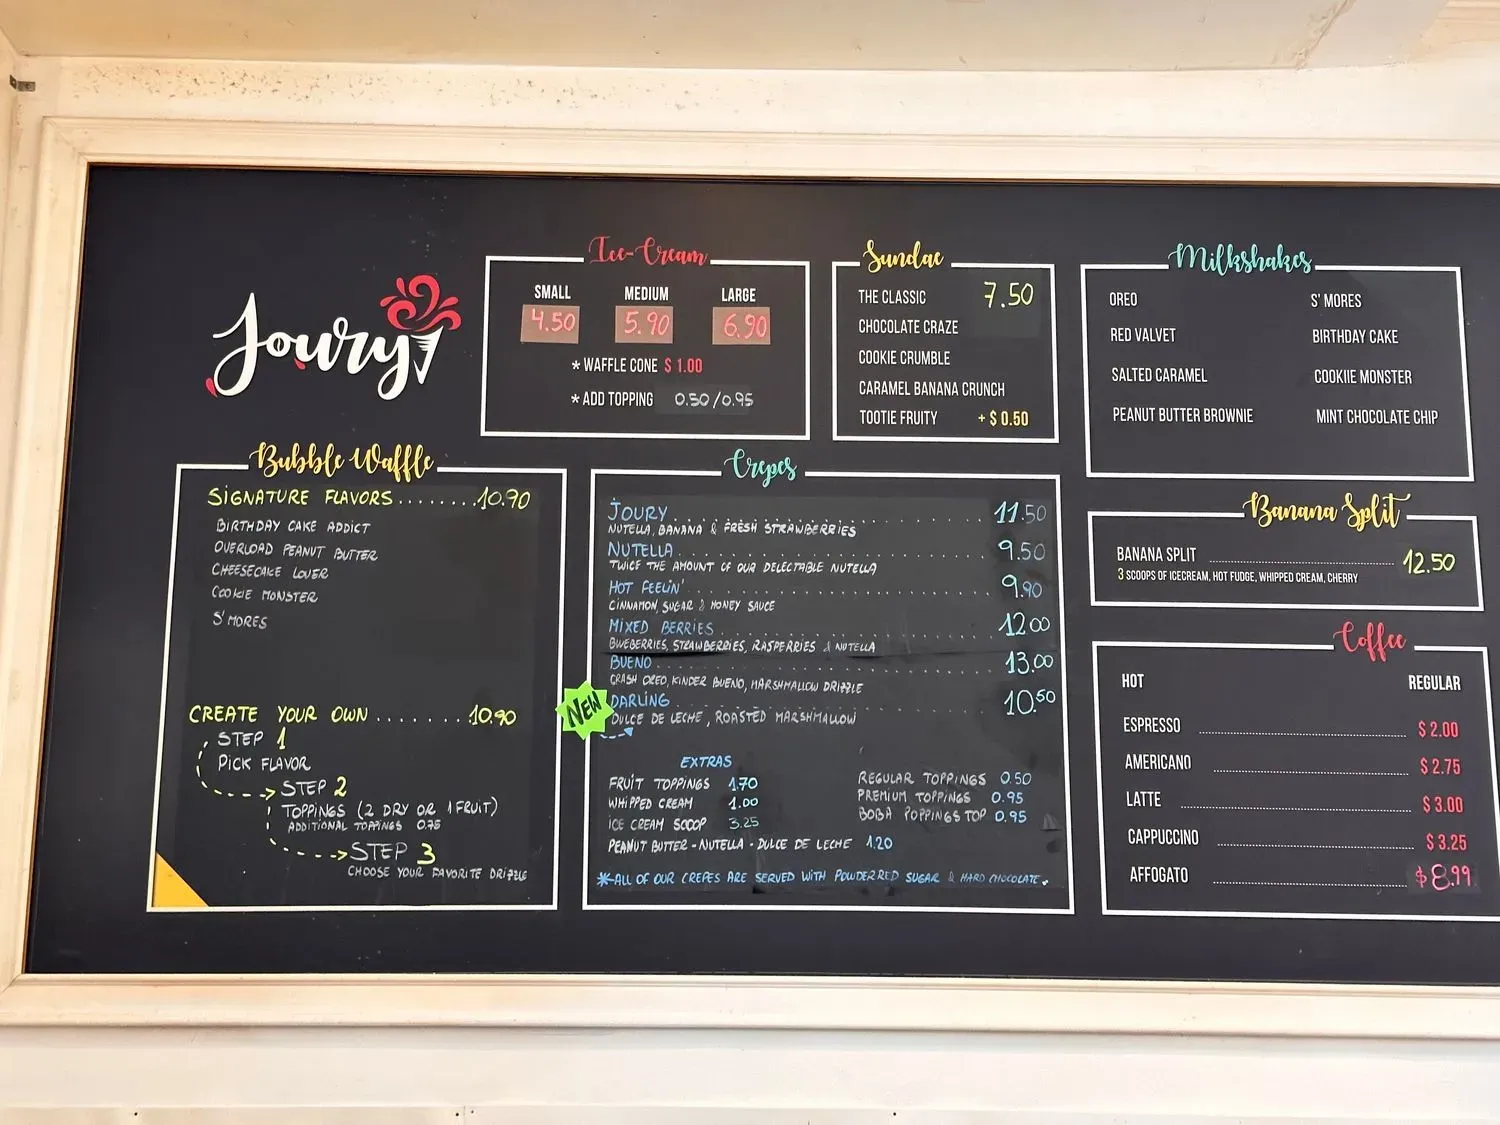 Joury
Ice-Cream
SMALL MEDIUM LARGE
4.50 5.90 6.90
* WAFFLE CONE $ 1.00
* ADD TOPPING 0.50/0.95
Sundae
THE CLASSIC 7.50
CHOCOLATE CRAZE
COOKIE CRUMBLE
CARAMEL BANANA CRUNCH
TOOTIE FRUITY + $ 0.50
Milkshakes
OREO S' MORES
RED VALVET BIRTHDAY CAKE
SALTED CARAMEL COOKIIE MONSTER
PEANUT BUTTER BROWNIE MINT CHOCOLATE CHIP
Bubble Waffle
SIGNATURE FLAVORS........10.90
BIRTHDAY CAKE ADDICT
OVERLOAD PEANUT BUTTER
CHEESECAKE LOVER
COOKIE MONSTER
S'MORES
CREATE YOUR OWN........10.90
STEP 1
PICK FLAVOR
STEP 2
TOPPINGS (2 DRY OR 1 FRUIT)
ADDITIONAL TOPPINGS 0.75
STEP 3
CHOOSE YOUR FAVORITE DRIZZLE
Crepes
JOURY 11.50
NUTELLA, BANANA & FRESH STRAWBERRIES
NUTELLA 9.50
TWICE THE AMOUNT OF OUR DELECTABLE NUTELLA
HOT FEELIN' 9.90
CINNAMON, SUGAR & HONEY SAUCE
MIXED BERRIES 12.00
BLUEBERRIES, STRAWBERRIES, RASPERRIES & NUTELLA
BUENO 13.00
CRASH OREO, KINDER BUENO, MARSHMALLOW DRIZZLE
NEW
DARLING 10.50
DULCE DE LECHE, ROASTED MARSHMALLOW
EXTRAS
FRUIT TOPPINGS 1.70 REGULAR TOPPINGS 0.50
WHIPPED CREAM 1.00 PREMIUM TOPPINGS 0.95
ICE CREAM SCOOP 3.25 BOBA POPPINGS TOP 0.95
PEANUT BUTTER - NUTELLA - DULCE DE LECHE 1.20
*-ALL OF OUR CREPES ARE SERVED WITH POWDERRED SUGAR & HARD CHOCOLATE.
Banana Split
BANANA SPLIT 12.50
3 SCOOPS OF ICECREAM, HOT FUDGE, WHIPPED CREAM, CHERRY
Coffee
HOT REGULAR
ESPRESSO $ 2.00
AMERICANO $ 2.75
LATTE $ 3.00
CAPPUCCINO $ 3.25
AFFOGATO $ 8.99